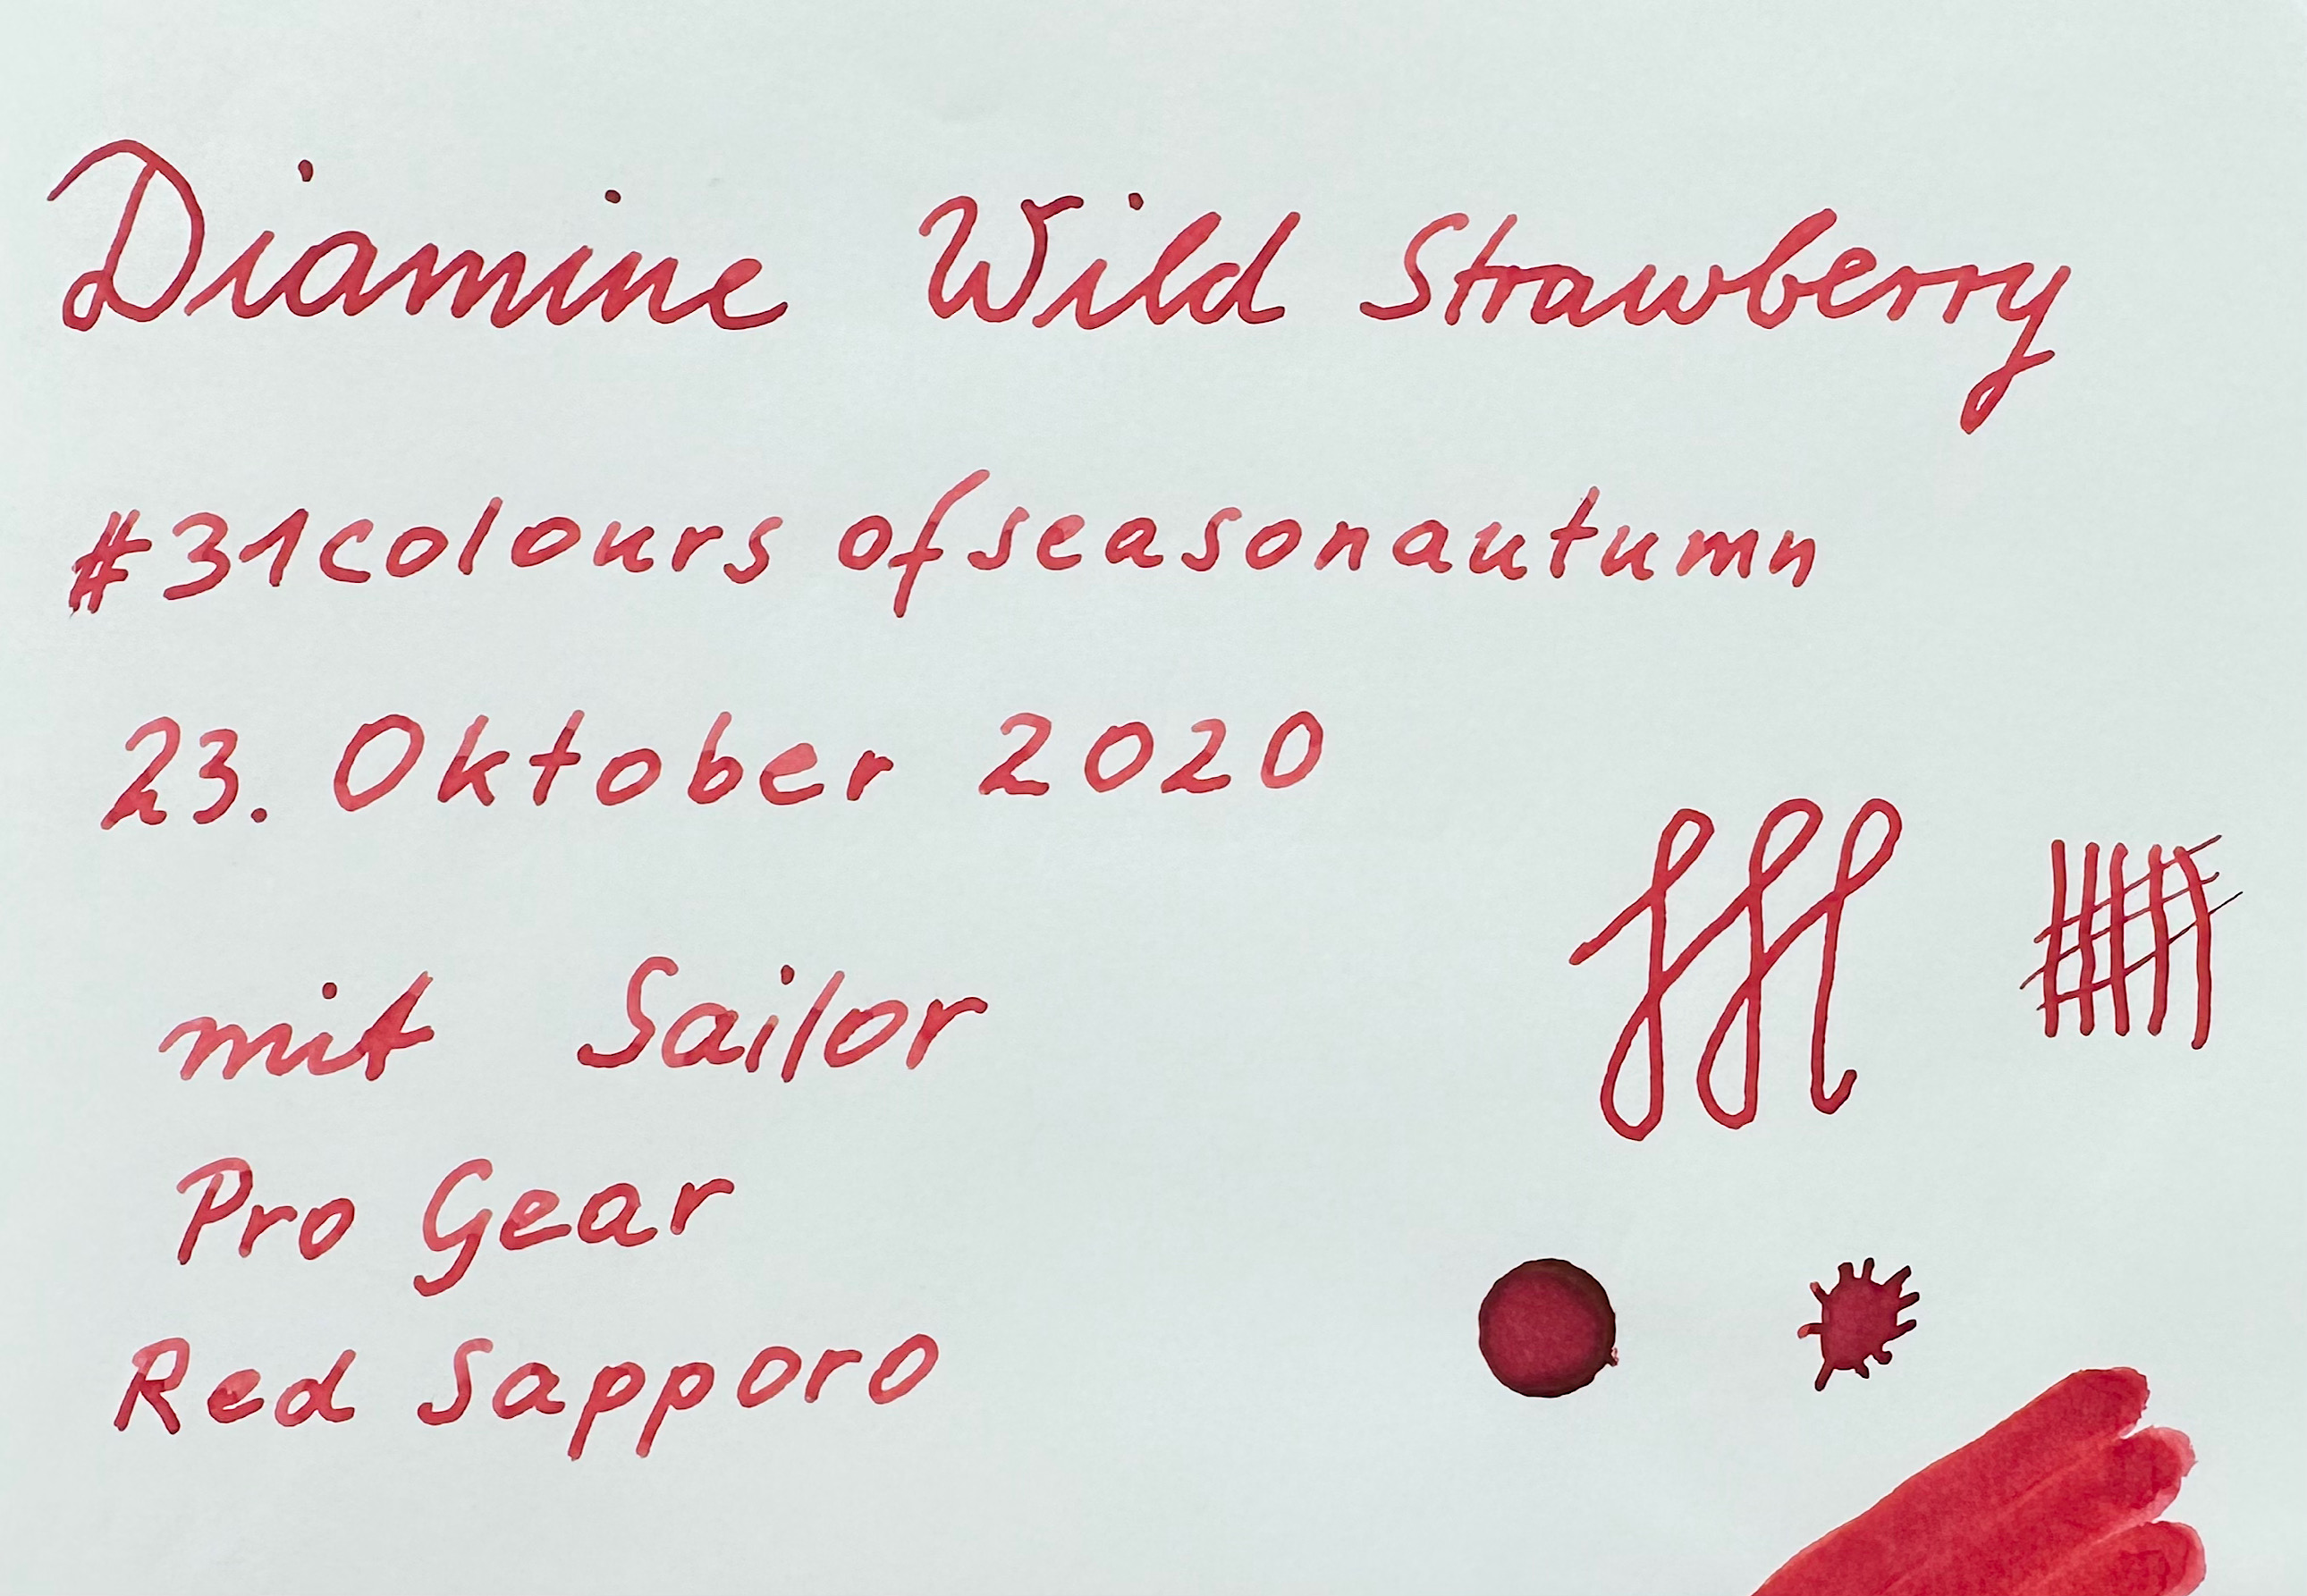 Diamine Wild Strawberry
#31colours ofseasonautumn
23. Oktober 2020
mit Sailor
Pro Gear
Red Sapporo